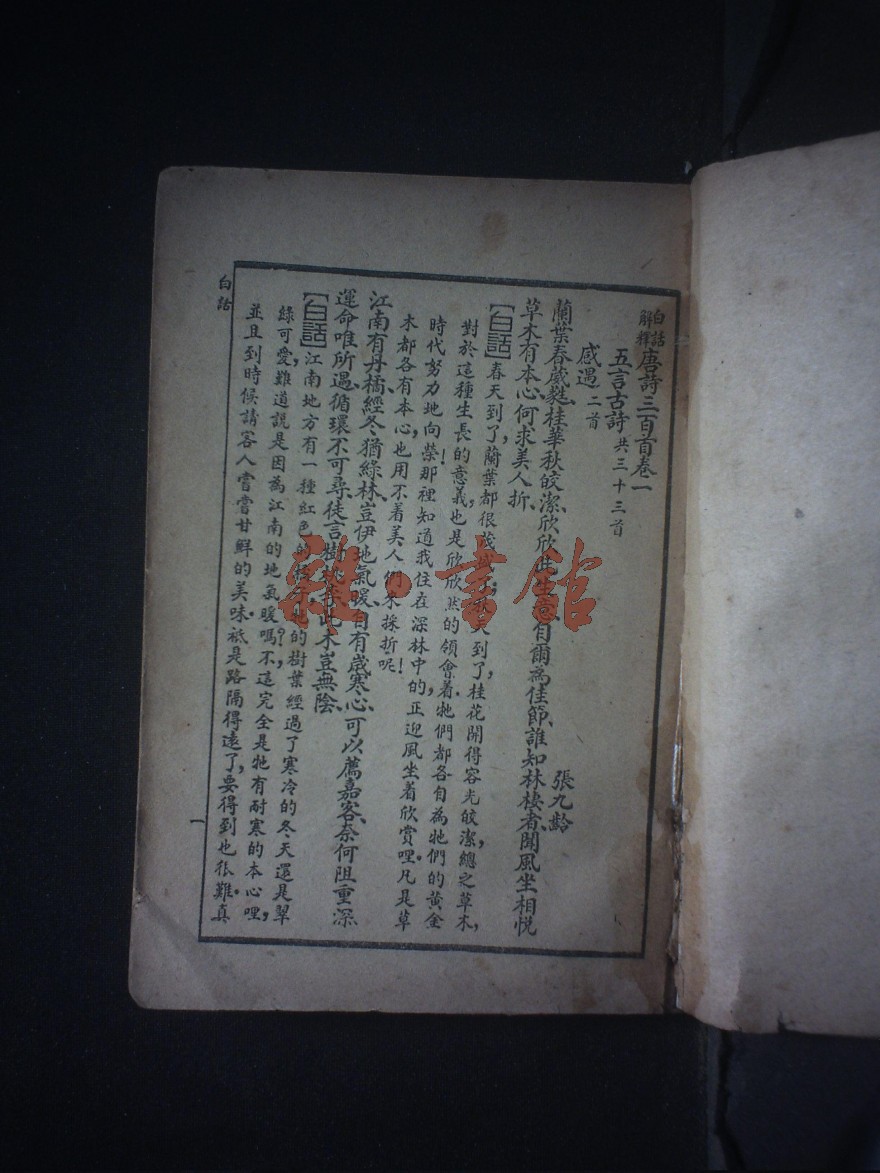 白話解釋唐詩三百首卷一
五言古詩 共三十三首
感遇 二首 張九齡
蘭葉春葳蕤、桂華秋皎潔、欣欣此生意、自爾為佳節、誰知林棲者、聞風坐相悅
草木有本心、何求美人折、
【白話】春天到了，蘭葉都很茂盛了，秋天到了桂花開得容光皎潔，總之草木，
對於這種生長的意義，也是欣欣然的領會着，牠們都各自為牠們的黃金
時代努力地向榮！那裡知道我住在深林中的，正迎風坐着欣賞哩。凡是草
木都各有本心，也用不着美人們來採折呢！
江南有丹橘、經冬猶綠林、豈伊地氣暖、自有歲寒心、可以薦嘉客、奈何阻重深
運命唯所遇、循環不可尋、徒言樹桃李、此木豈無陰、
【白話】江南地方有一種紅色的橘子，牠的樹葉經過了寒冷的冬天還是翠
綠可愛，難道說是因為江南的地氣暖嗎？不，這完全是牠有耐寒的本心哩，
並且到時候請客人嘗嘗甘鮮的美味。祗是路隔得遠了，要得到也很難。真
白話
一
雜·書館